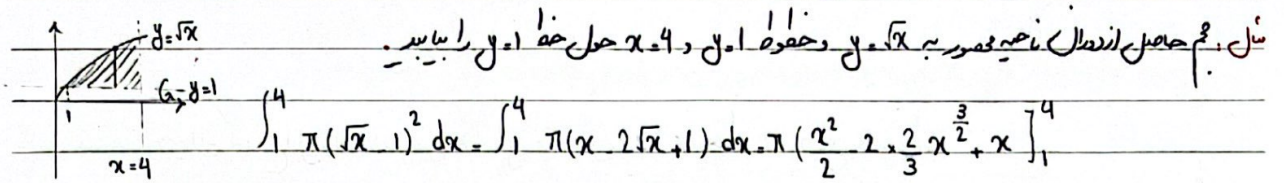 مثال: حجم حاصل از دوران ناحیه محصور به y=√x و خطوط y=1 و x=4 حول خط y=1 را بیابید.
y=√x
y=1
1
x=4
∫₁⁴ π(√x - 1)² dx = ∫₁⁴ π(x - 2√x + 1) dx = π(x²/2 - 2×2/3 x^(3/2) + x]₁⁴